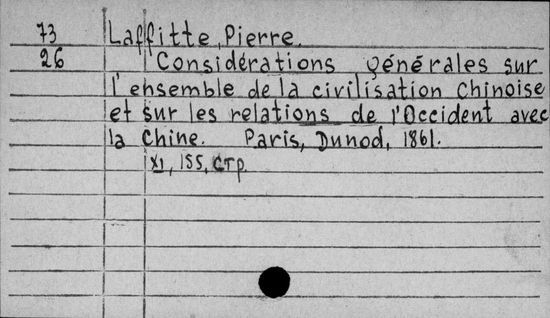 73 Laffitte, Pierre.
26 Considérations générales sur
l'ensemble de la civilisation Chinoise
et sur les relations de l'Occident avec
la Chine. Paris, Dunod, 1861.
XI, 155, стр.